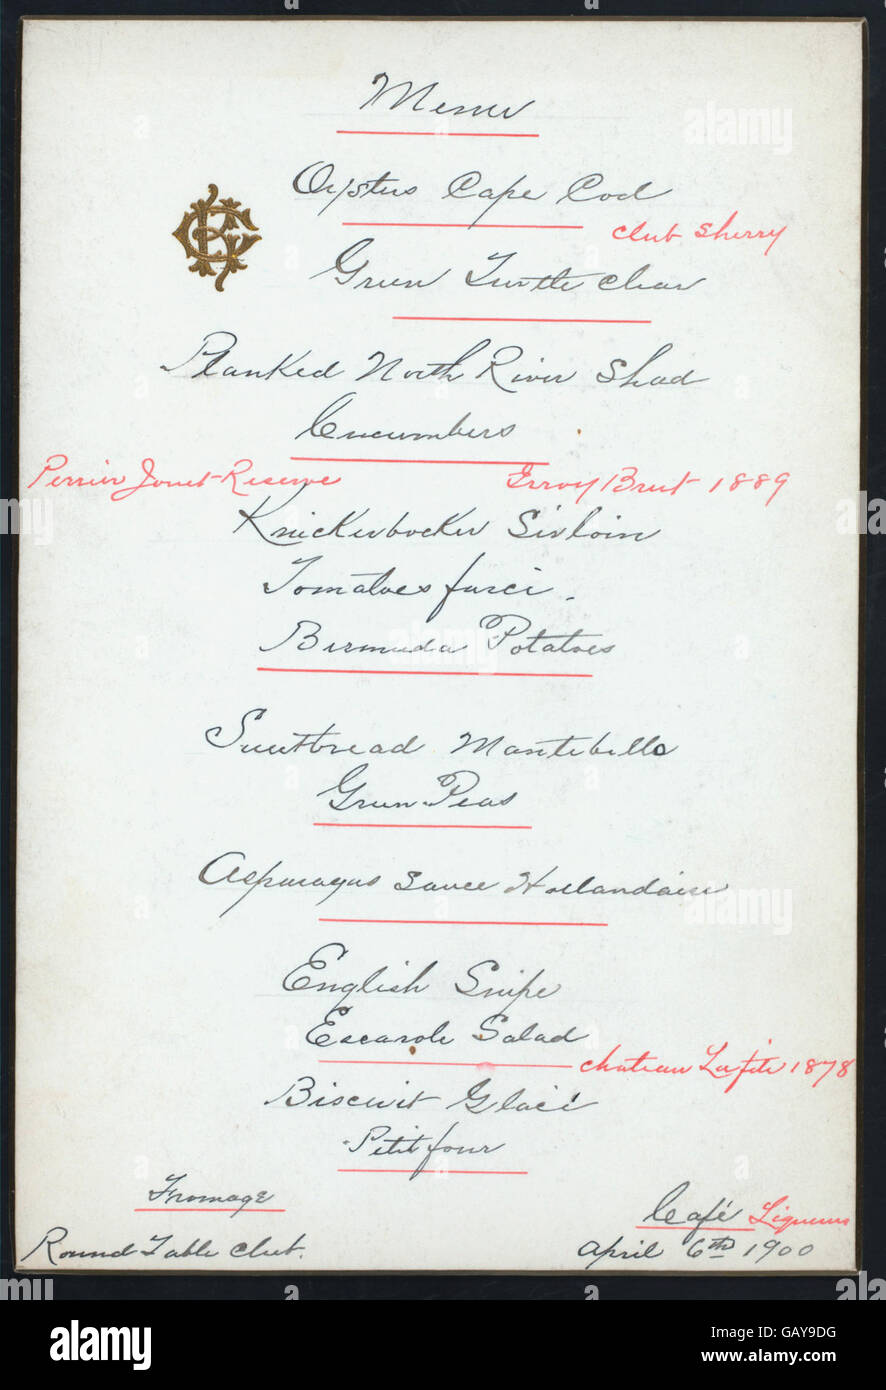 Menu
Oysters Cape Cod
Club Sherry
Green Turtle Clear
Planked North River Shad
Cucumbers
Perrier Jouet Reserve Irroy Brut 1889
Knickerbocker Sirloin
Tomatoes farci.
Bermuda Potatoes
Sweetbread Montebello
Green Peas
Asparagus Sauce Hollandaise
English Snipe
Escarole Salad
Chateau Lafite 1878
Biscuit Glacé
Petit four
Fromage
Café Liqueurs
Round Table Club.
April 6th 1900
alamy
Image ID: GAY9DG
www.alamy.com